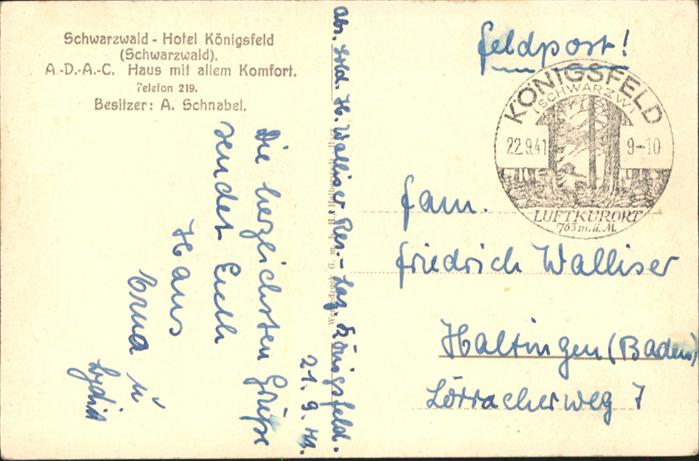 Schwarzwald - Hotel Königsfeld
(Schwarzwald).
A.-D.-A.-C. Haus mit allem Komfort.
Telefon 219.
Besitzer: A. Schnabel.
Die herzlichsten Grüße
sendet Euch
Hans
Erna u
Lydia
Abs. Sold. H. Walliser Res.-Laz. Königsfeld.
21. 9. 41.
Feldpost!
KÖNIGSFELD
(SCHWARZW.)
22.9.41
9-10
LUFTKURORT
763 m.ü.M.
Fam.
Friedrich Walliser
Haltingen (Baden)
Lörracherweg 7